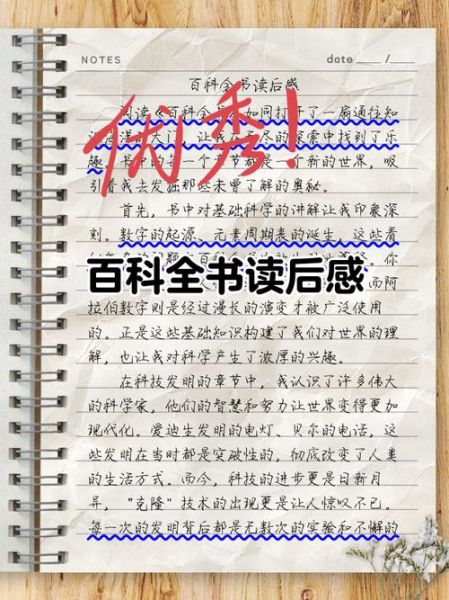 NOTES date / 
百科全书读后感
阅读《百科全如同打开了一扇通往知
大门，让我尽的探索中找到了乐
趣。书中的每一个章节都是一个新的世界，吸
引着我去发掘那些未曾了解的奥秘。
优秀！
首先，书中对基础科学的讲解让我印象深
刻。数字的起源、元素周期表的诞生，这些看
你
百科全书读后感
而阿
拉伯数字则是经过漫长的演变才被广泛使用
的。正是这些基础知识构建了我们对世界的理
解，也让我对科学产生了浓厚的兴趣。
在科技发明的章节中，我认识了许多伟大
的科学家，他们的智慧和努力让世界变得更加
现代化。爱迪生发明的电灯、贝尔的电话，这
些发明在当时都是突破性的，彻底改变了人类
的生活方式。而今，科技的进步更是日新月
异，"克隆"技术的出现更是让人惊叹不已。
每一次的发明背后都是无数次的实验和不懈的